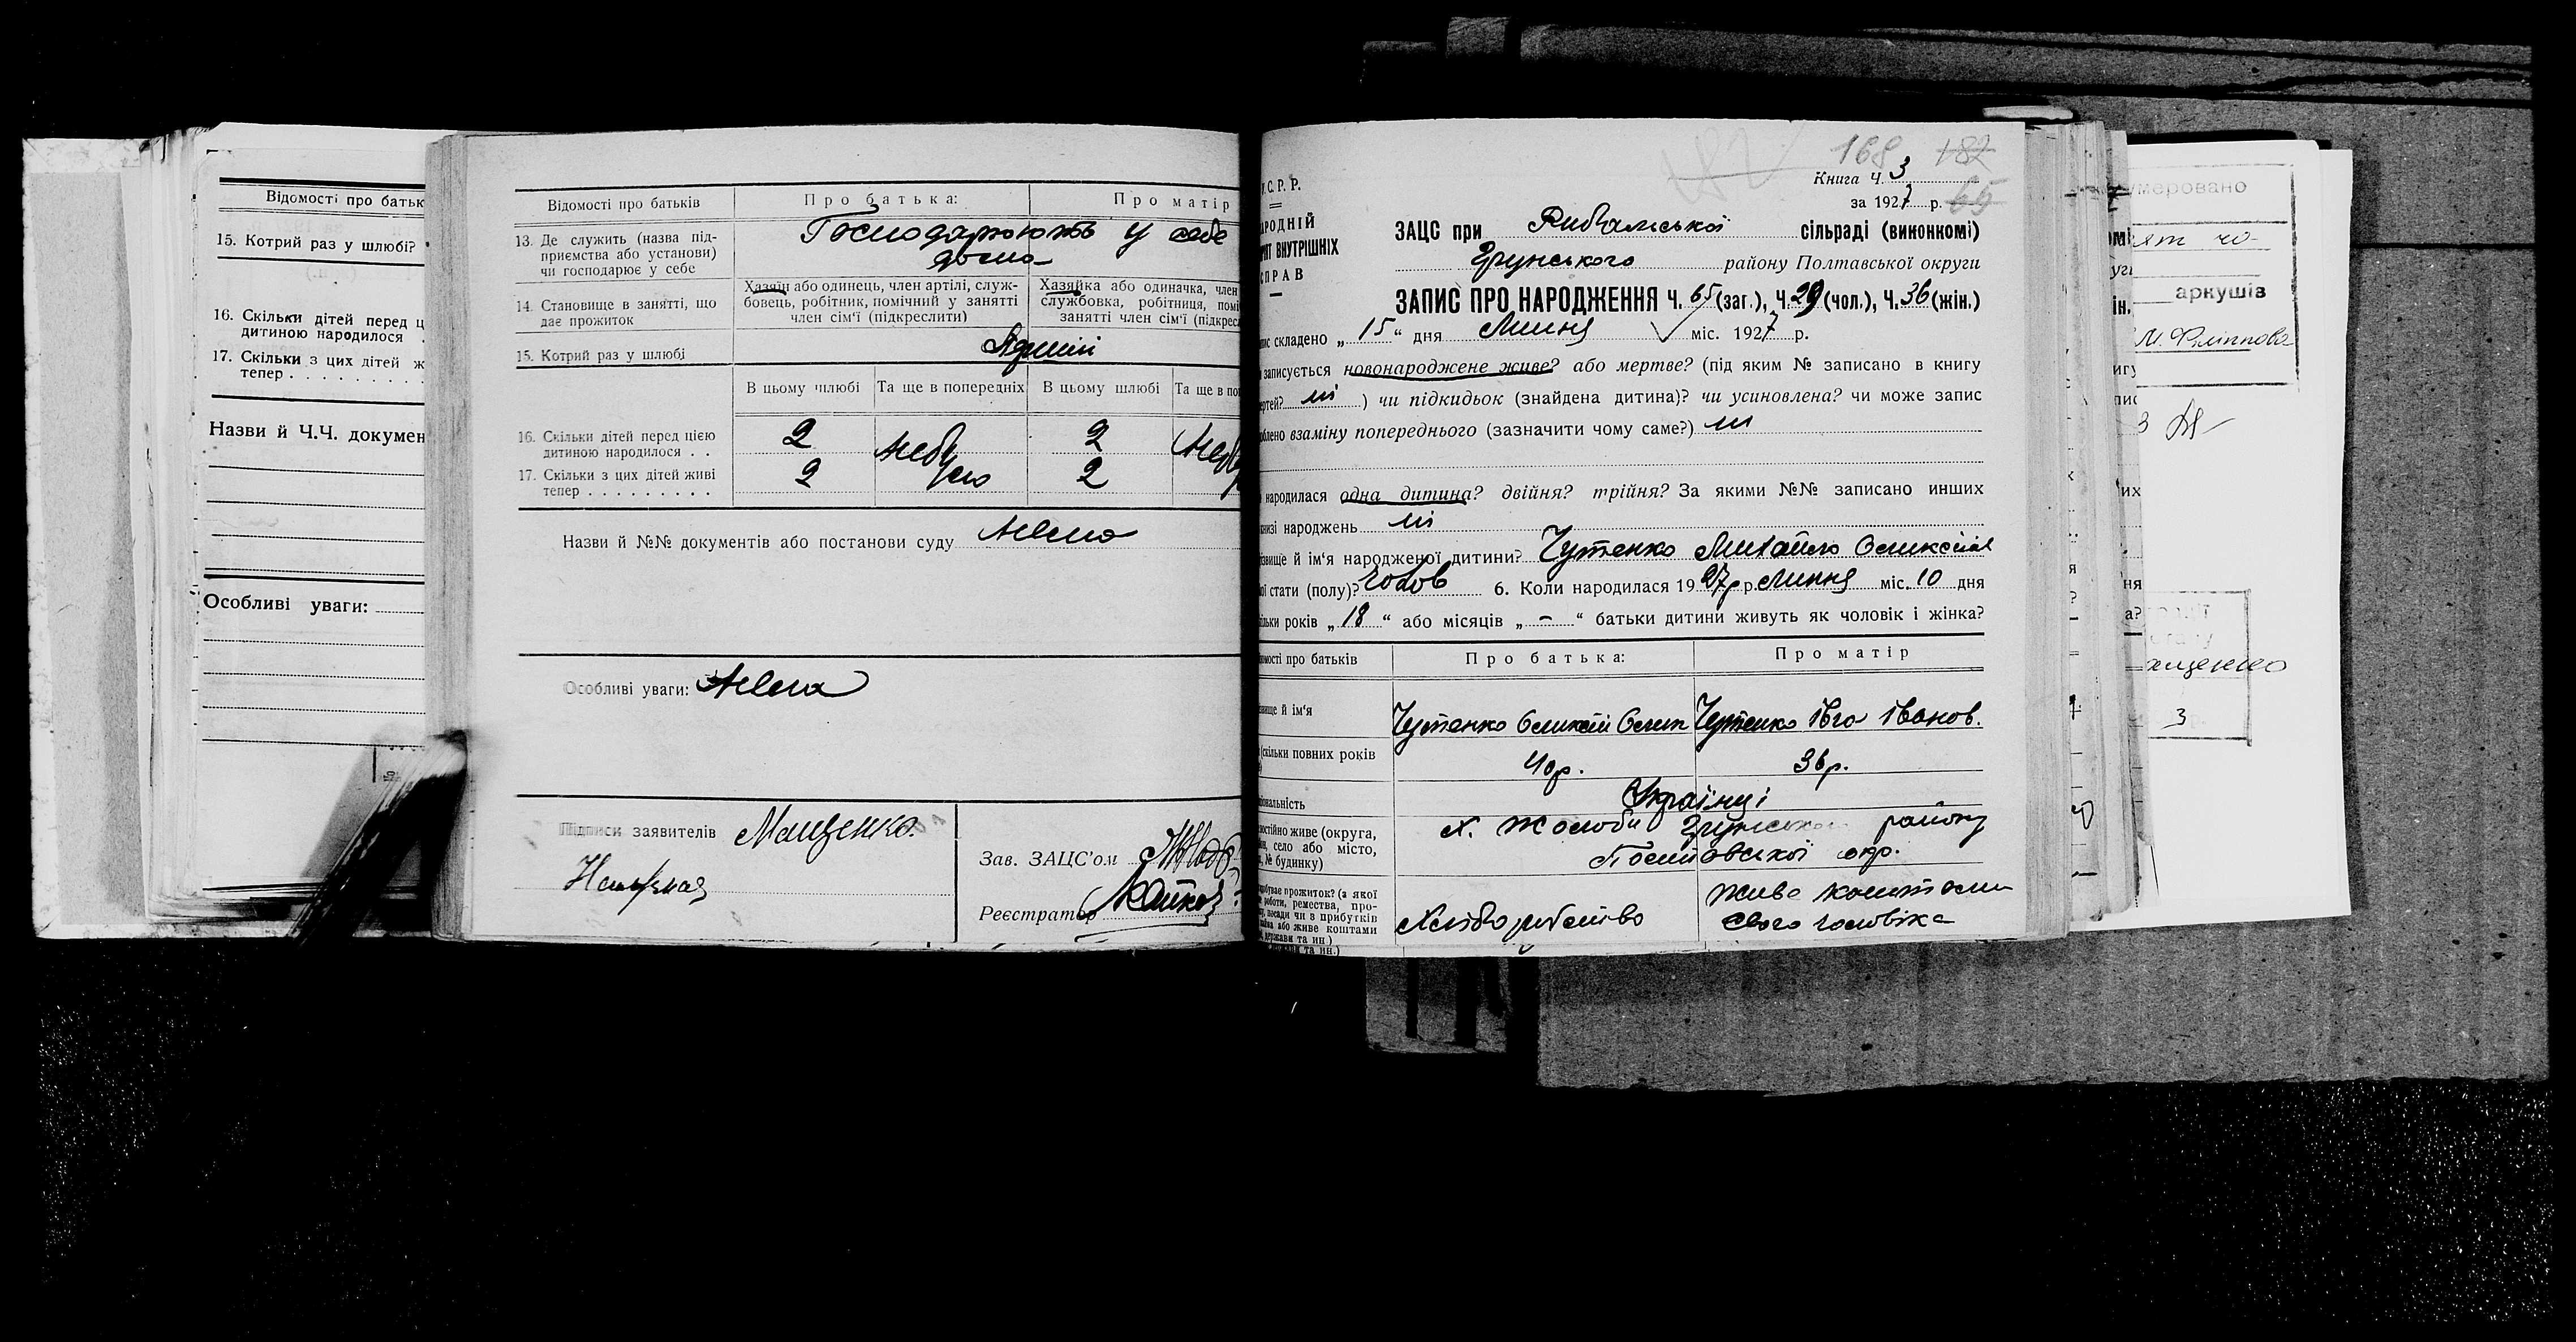 Відомості про батьк
15. Котрий раз у шлюбі?
16. Скільки дітей перед ц
дитиною народилося .
17. Скільки з цих дітей ж
тепер . . . . . . . .
Назви й Ч.Ч. докумен
Особливі уваги:
Відомості про батьків
Про батька:
Про матір
13. Де служить (назва під-
приємства або установи)
чи господарює у себе
Господарюють у себе
дома
14. Становище в занятті, що
дає прожиток
Хазяїн або одинець, член артілі, служ-
бовець, робітник, помічний у занятті
член сім'ї (підкреслити)
Хазяйка або одиначка, член
службовка, робітниця, помі
занятті член сім'ї (підкресл
15. Котрий раз у шлюбі
В цьому шлюбі
Та ще в попередніх
В цьому шлюбі
Та ще в поп
16. Скільки дітей перед цією
дитиною народилося . .
2
2
17. Скільки з цих дітей живі
тепер . . . . . . . . .
2
2
Назви й №№ документів або постанови суду Нема
Особливі уваги: Нема
Підписи заявителів Мащенко.
Зав. ЗАЦС'ом
Реєстратор
168 182
Книга Ч. 3
за 1927 р. 65
У.С.Р.Р.
РОДНІЙ
ВНУТРІШНІХ
СПРАВ
ЗАЦС при Рибальської сільраді (виконкомі)
Грунського району Полтавської округи
ЗАПИС ПРО НАРОДЖЕННЯ Ч. 65 (заг.), Ч. 29 (чол.), Ч. 36 (жін.)
складено „ 15 “ дня Липня міс. 1927 р.
записується новонароджене живе? або мертве? (під яким № записано в книгу
ертей? ні ) чи підкидьок (знайдена дитина)? чи усиновлена? чи може запис
облено взаміну попереднього (зазначити чому саме?) ні
народилася одна дитина? двійня? трійня? За якими №№ записано инших
книзі народжень ні
звище й ім'я народженої дитини? Чутенко Михайло Олексійов
стати (полу)? чолов 6. Коли народилася 1927 р. Липня міс. 10 дня
ільки років „ 18 “ або місяців „ – “ батьки дитини живуть як чоловік і жінка?
омості про батьків
Про батька:
Про матір
звище й ім'я
Чутенко Олексій Олек
Чутенко Івга Іванов.
скільки повних років
40р.
36р.
іональність
Українці
остійно живе (округа,
село або місто,
№ будинку)
х. Жолоби Грунського району
Полтавської окр.
добуває прожиток? (з якої
роботи, ремества, про-
посади чи в прибутків
або живе коштами
держави та ин.)
Хліборобство
живе коштами
свого чоловіка
умеровано
аркушів
М. Філіппова
ащенко
3